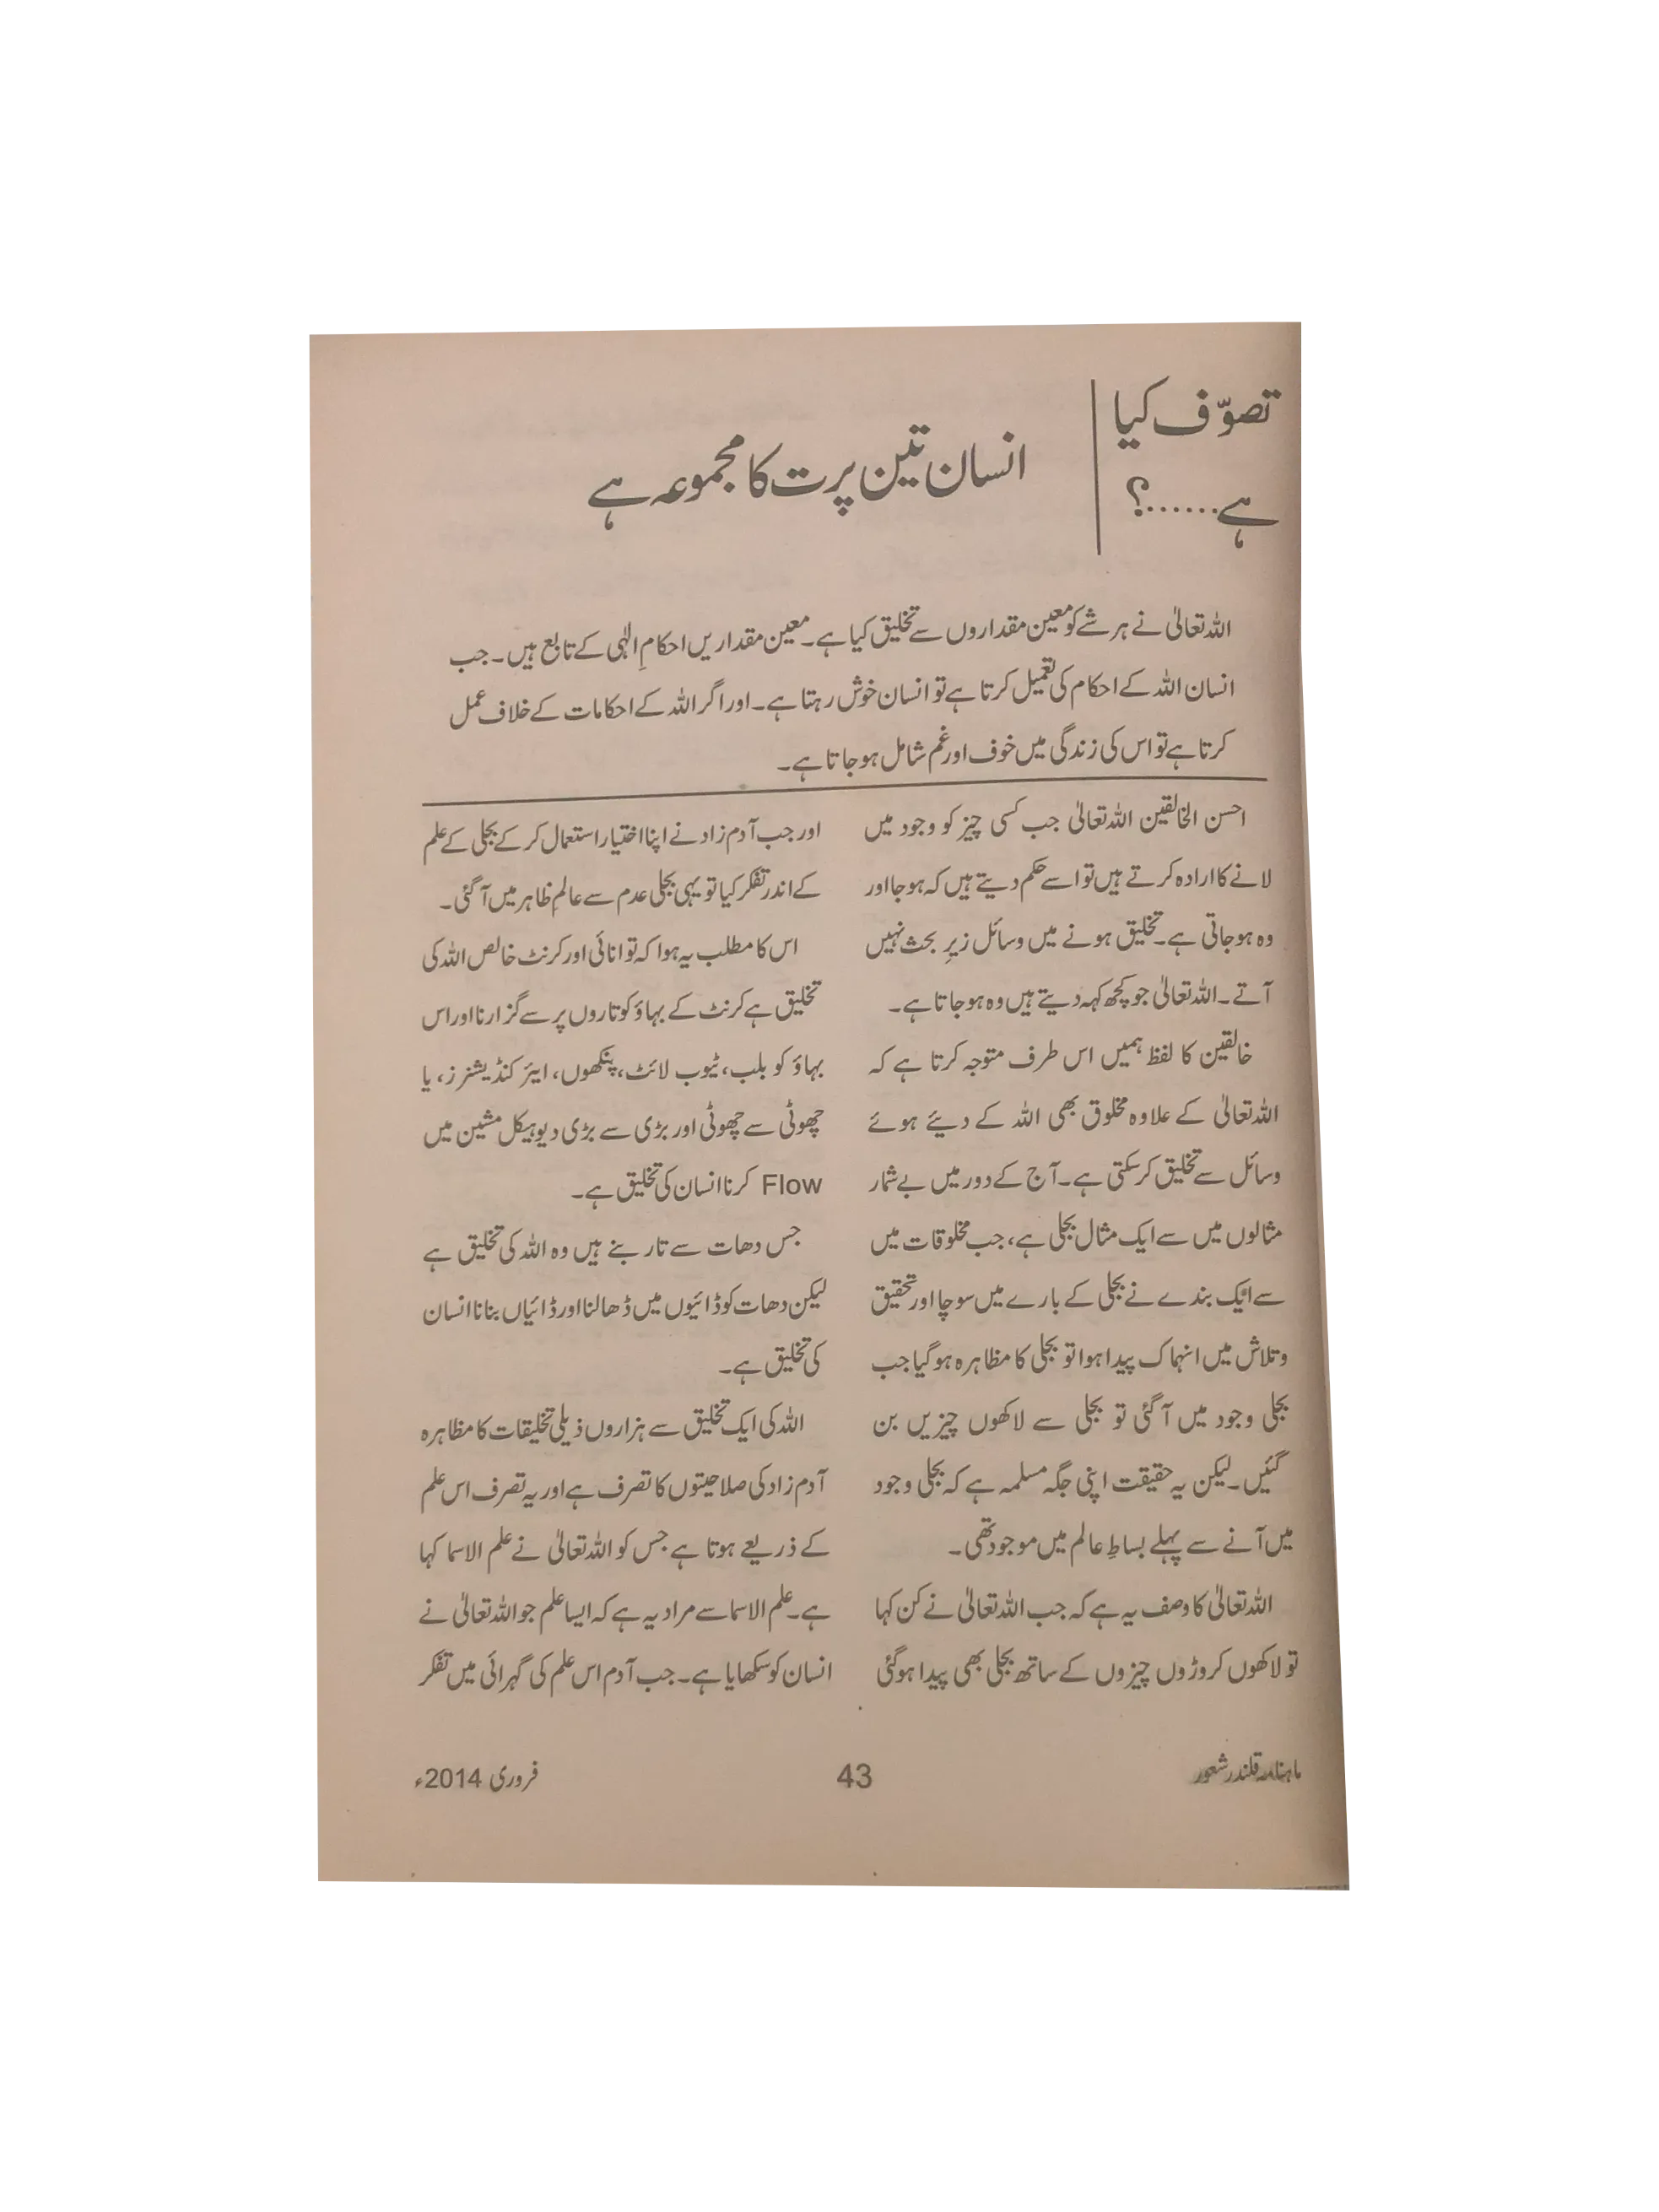 تصوّف کیا
ہے......؟
انسان تین پرت کا مجموعہ ہے
اللہ تعالیٰ نے ہر شے کو معین مقداروں سے تخلیق کیا ہے۔ معین مقداریں احکامِ الٰہی کے تابع ہیں۔ جب
انسان اللہ کے احکام کی تعمیل کرتا ہے تو انسان خوش رہتا ہے۔ اور اگر اللہ کے احکامات کے خلاف عمل
کرتا ہے تو اس کی زندگی میں خوف اور غم شامل ہو جاتا ہے۔
احسن الخالقین اللہ تعالیٰ جب کسی چیز کو وجود میں
لانے کا ارادہ کرتے ہیں تو اسے حکم دیتے ہیں کہ ہو جا اور
وہ ہو جاتی ہے۔ تخلیق ہونے میں وسائل زیرِ بحث نہیں
آتے۔ اللہ تعالیٰ جو کچھ کہہ دیتے ہیں وہ ہو جاتا ہے۔
خالقین کا لفظ ہمیں اس طرف متوجہ کرتا ہے کہ
اللہ تعالیٰ کے علاوہ مخلوق بھی اللہ کے دیئے ہوئے
وسائل سے تخلیق کر سکتی ہے۔ آج کے دور میں بے شمار
مثالوں میں سے ایک مثال بجلی ہے، جب مخلوقات میں
سے ایک بندے نے بجلی کے بارے میں سوچا اور تحقیق
و تلاش میں انہماک پیدا ہوا تو بجلی کا مظاہرہ ہو گیا جب
بجلی وجود میں آ گئی تو بجلی سے لاکھوں چیزیں بن
گئیں۔ لیکن یہ حقیقت اپنی جگہ مسلمہ ہے کہ بجلی وجود
میں آنے سے پہلے بساطِ عالم میں موجود تھی۔
اللہ تعالیٰ کا وصف یہ ہے کہ جب اللہ تعالیٰ نے کن کہا
تو لاکھوں کروڑوں چیزوں کے ساتھ بجلی بھی پیدا ہو گئی
اور جب آدم زاد نے اپنا اختیار استعمال کر کے بجلی کے علم
کے اندر تفکر کیا تو یہی بجلی عدم سے عالمِ ظاہر میں آ گئی۔
اس کا مطلب یہ ہوا کہ توانائی اور کرنٹ خالص اللہ کی
تخلیق ہے کرنٹ کے بہاؤ کو تاروں پر سے گزارنا اور اس
بہاؤ کو بلب، ٹیوب لائٹ، پنکھوں، ایئر کنڈیشنرز، یا
چھوٹی سے چھوٹی اور بڑی سے بڑی دیوہیکل مشین میں
Flow کرنا انسان کی تخلیق ہے۔
جس دھات سے تار بنے ہیں وہ اللہ کی تخلیق ہے
لیکن دھات کو ڈائیوں میں ڈھالنا اور ڈائیاں بنانا انسان
کی تخلیق ہے۔
اللہ کی ایک تخلیق سے ہزاروں ذیلی تخلیقات کا مظاہرہ
آدم زاد کی صلاحیتوں کا تصرف ہے اور یہ تصرف اس علم
کے ذریعے ہوتا ہے جس کو اللہ تعالیٰ نے علم الاسما کہا
ہے۔ علم الاسما سے مراد یہ ہے کہ ایسا علم جو اللہ تعالیٰ نے
انسان کو سکھایا ہے۔ جب آدم اس علم کی گہرائی میں تفکر
ماہنامہ قلندر شعور
43
فروری 2014ء